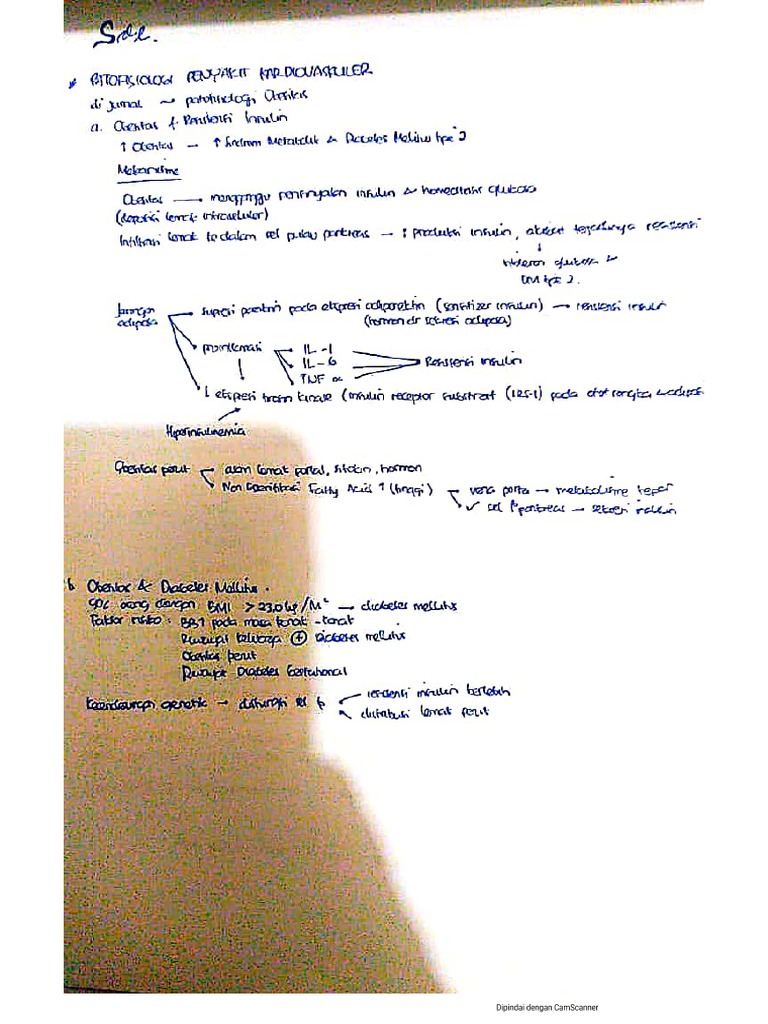 Sdl.
* PATOFISIOLOGI PENYAKIT KARDIOVASKULER
di jurnal → patofisiologi Obesitas
a. Obesitas & Resistensi Insulin
↑ Obesitas → ↑ Sindrom Metabolik & Diabetes Melitus tipe 2
Mekanisme
Obesitas → mengganggu pensinyalan insulin & homeostasis glukosa
(deposisi lemak intraselular)
Infiltrasi lemak ke dalam sel pulau pankreas → ↓ produksi insulin, akibat terjadinya resistensi
↓
intoleran glukosa &
DM tipe 2.
Jaringan adiposa → supresi parakrin pada ekspresi adiponektin (sensitizer insulin) → resistensi insulin
(hormon dr sekresi adiposa)
proinflamasi
IL-1
IL-6
TNF α
Resistensi insulin
↓ ekspresi tirosin kinase (insulin receptor substrat (IRS-1) pada otot rangka & adiposit
Hiperinsulinemia
Obesitas perut
asam lemak portal, sitokin, hormon
Non Esterifikasi Fatty Acid ↑ (tinggi)
vena porta → metabolisme hepar
sel β pankreas → sekresi insulin
b Obesitas & Diabetes Mellitus.
90% orang dengan BMI > 23.0 kg/M² → diabetes mellitus
Faktor risiko : BB↑ pada masa kanak-kanak
Riwayat keluarga (+) Diabetes mellitus
Obesitas perut
Riwayat Diabetes Gestational
Kecenderungan genetik → disfungsi sel β
resistensi insulin berlebih
distribusi lemak perut
Dipindai dengan CamScanner